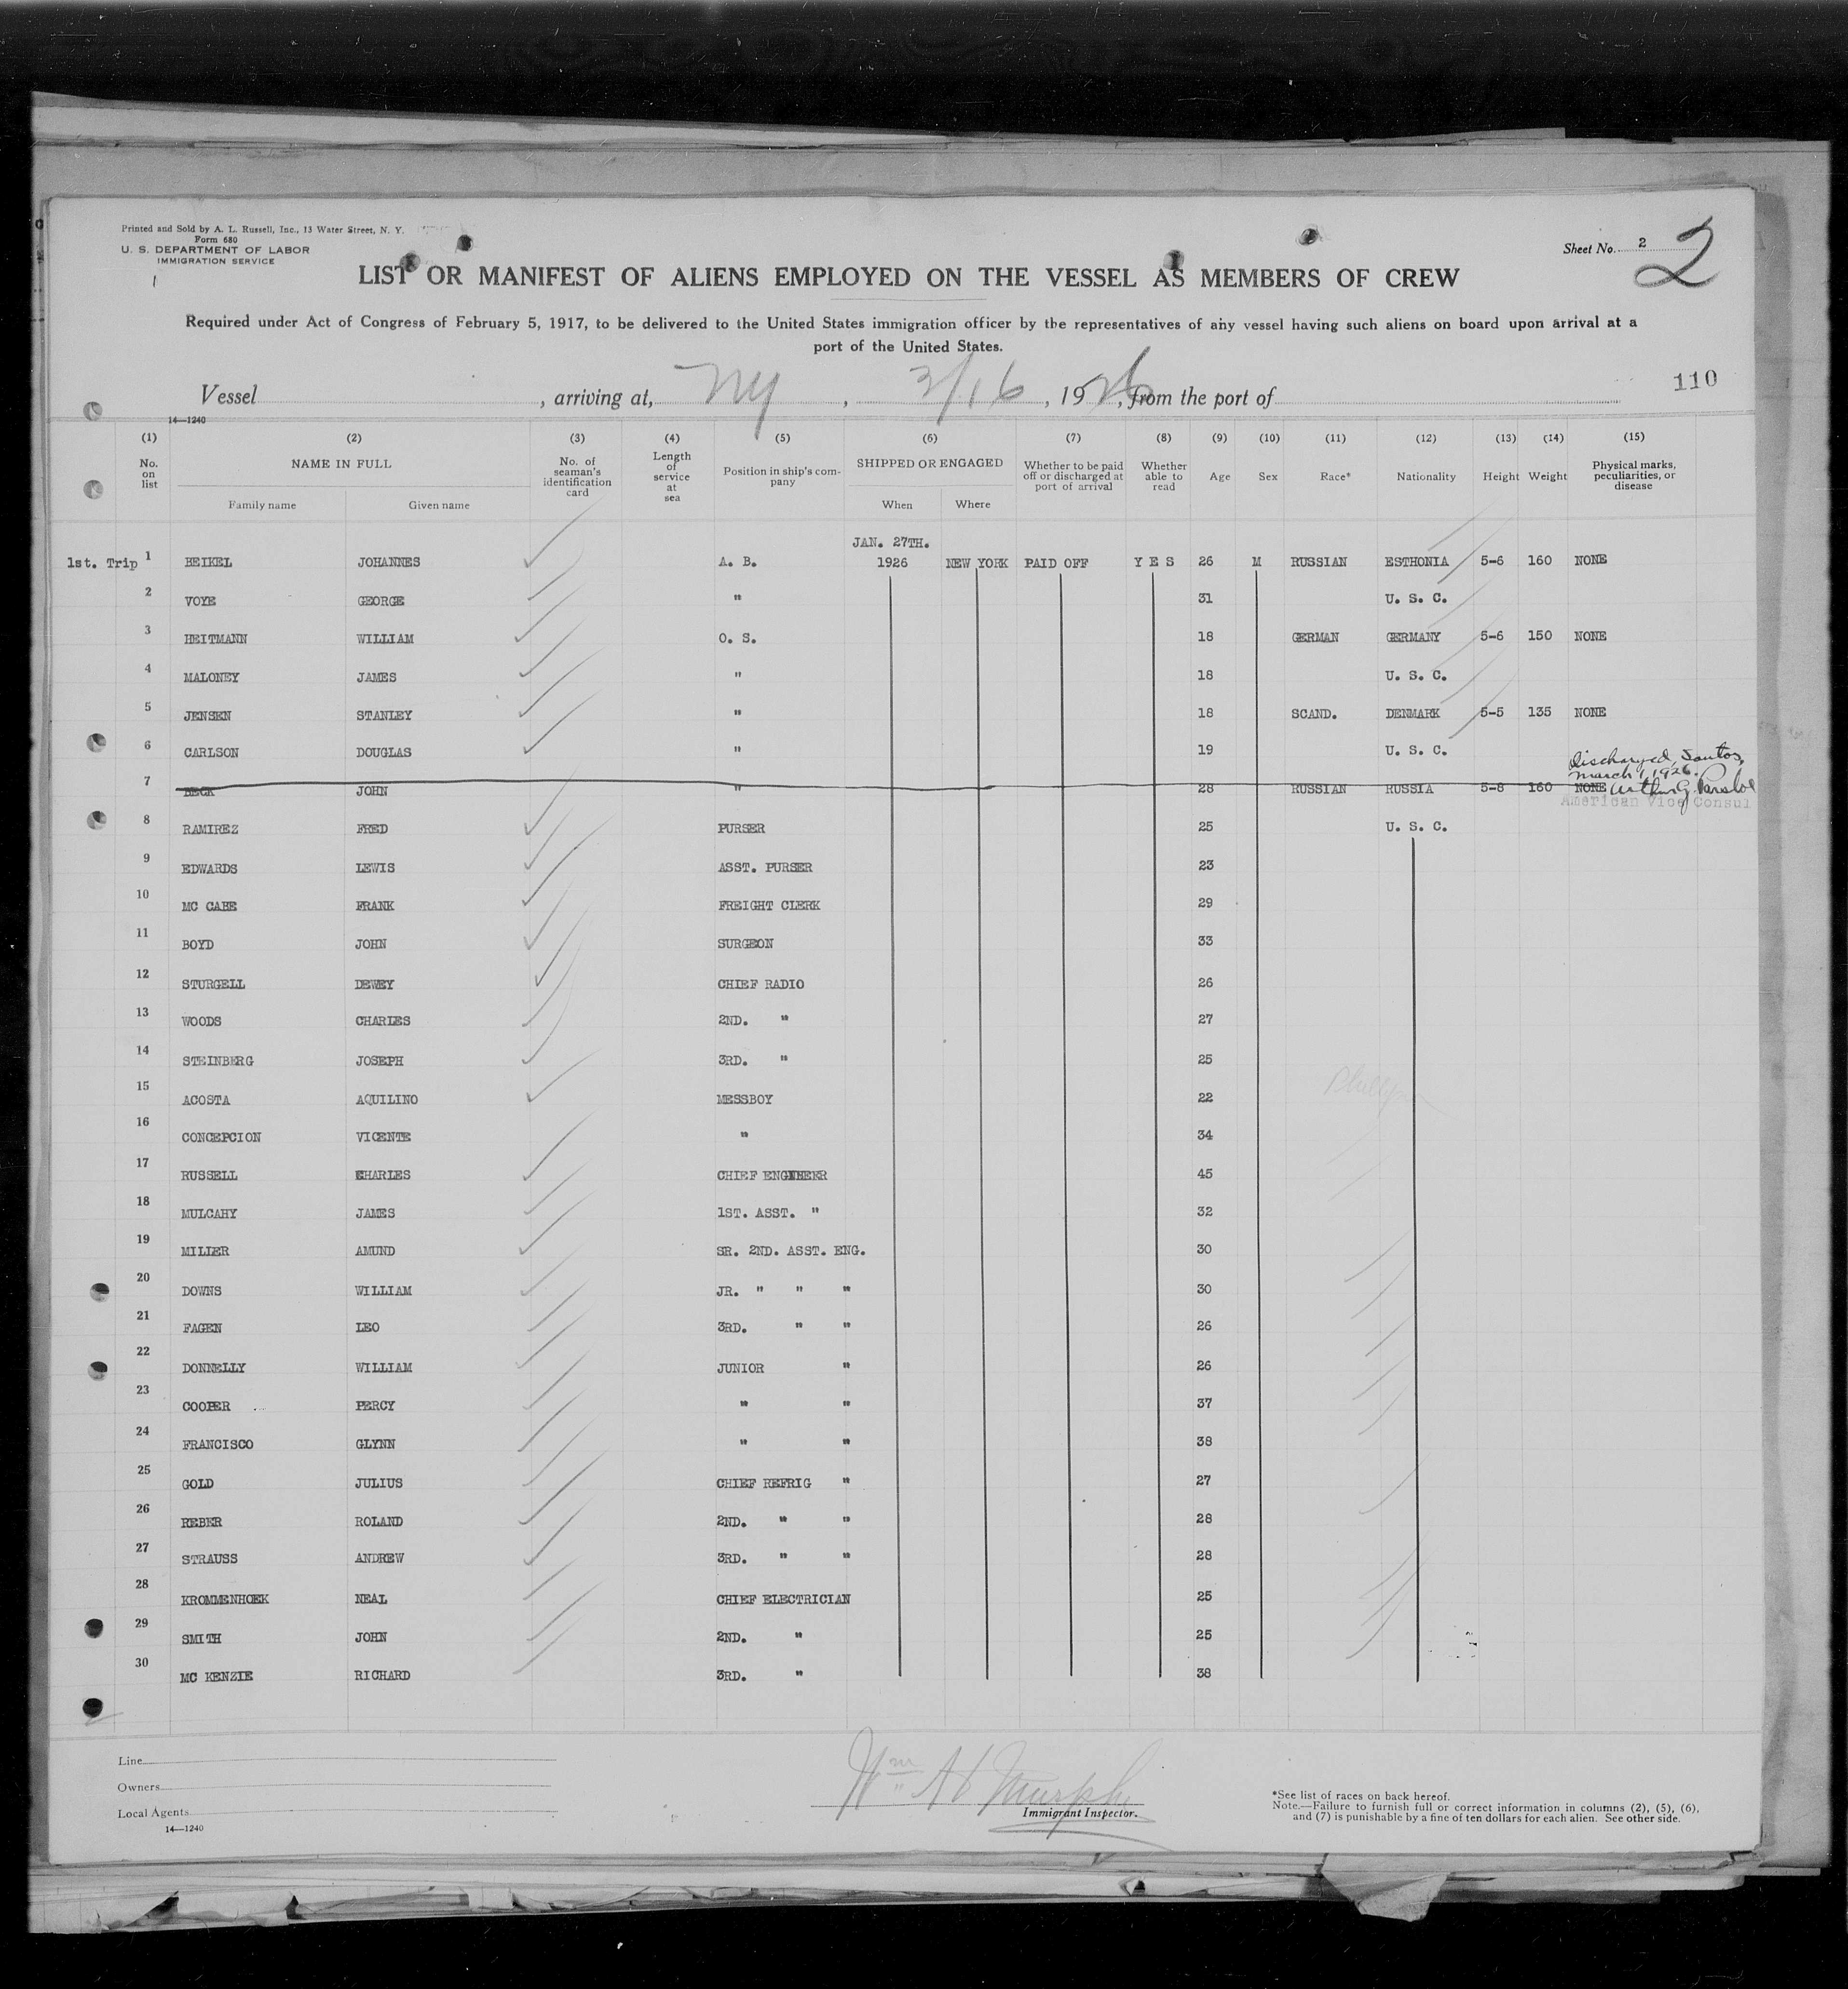 Printed and Sold by A. L. Russell, Inc., 13 Water Street, N. Y.
Form 680
U. S. DEPARTMENT OF LABOR
IMMIGRATION SERVICE
Sheet No. 2
2
LIST OR MANIFEST OF ALIENS EMPLOYED ON THE VESSEL AS MEMBERS OF CREW
Required under Act of Congress of February 5, 1917, to be delivered to the United States immigration officer by the representatives of any vessel having such aliens on board upon arrival at a
port of the United States.
110
Vessel , arriving at, NY , 3/16 , 1926 , from the port of
14—1240
(1) (2) (3) (4) (5) (6) (7) (8) (9) (10) (11) (12) (13) (14) (15)
No. on list NAME IN FULL No. of seaman's identification card Length of service at sea Position in ship's company SHIPPED OR ENGAGED Whether to be paid off or discharged at port of arrival Whether able to read Age Sex Race* Nationality Height Weight Physical marks, peculiarities, or disease
Family name Given name When Where
JAN. 27TH.
1st. Trip 1 BEIKEL JOHANNES A. B. 1926 NEW YORK PAID OFF Y E S 26 M RUSSIAN ESTHONIA 5-6 160 NONE
2 VOYE GEORGE " 31 U. S. C.
3 HEITMANN WILLIAM O. S. 18 GERMAN GERMANY 5-6 150 NONE
4 MALONEY JAMES " 18 U. S. C.
5 JENSEN STANLEY " 18 SCAND. DENMARK 5-5 135 NONE
6 CARLSON DOUGLAS " 19 U. S. C.
Discharged, Santos,
March 1, 1926.
7 BECK JOHN " 28 RUSSIAN RUSSIA 5-8 160 NONE Arthur G.
American Vice Consul
8 RAMIREZ FRED PURSER 25 U. S. C.
9 EDWARDS LEWIS ASST. PURSER 23
10 MC CABE FRANK FREIGHT CLERK 29
11 BOYD JOHN SURGEON 33
12 STURGELL DEWEY CHIEF RADIO 26
13 WOODS CHARLES 2ND. " 27
14 STEINBERG JOSEPH 3RD. " 25
15 ACOSTA AQUILINO MESSBOY 22
16 CONCEPCION VICENTE " 34
17 RUSSELL CHARLES CHIEF ENGINEER 45
18 MULCAHY JAMES 1ST. ASST. " 32
19 MILLER AMUND SR. 2ND. ASST. ENG. 30
20 DOWNS WILLIAM JR. " " " 30
21 FAGEN LEO 3RD. " " 26
22 DONNELLY WILLIAM JUNIOR " 26
23 COOPER PERCY " " 37
24 FRANCISCO GLYNN " " 38
25 GOLD JULIUS CHIEF REFRIG " 27
26 REBER ROLAND 2ND. " " 28
27 STRAUSS ANDREW 3RD. " " 28
28 KROMMENHOEK NEAL CHIEF ELECTRICIAN 25
29 SMITH JOHN 2ND. " 25
30 MC KENZIE RICHARD 3RD. " 38
Line
Owners
Local Agents
14—1240
Wm H Murphy
Immigrant Inspector.
*See list of races on back hereof.
Note.—Failure to furnish full or correct information in columns (2), (5), (6),
and (7) is punishable by a fine of ten dollars for each alien. See other side.